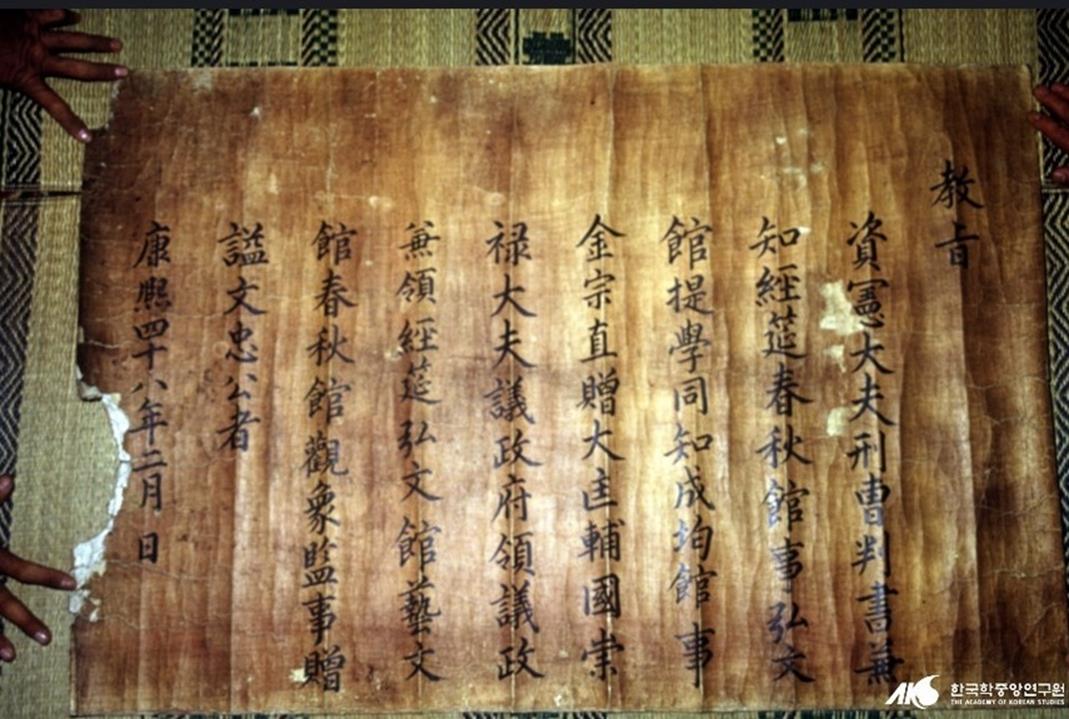 教旨
資憲大夫刑曹判書兼
知經筵春秋館事弘文
館提學同知成均館事
金宗直贈大匡輔國崇
禄大夫議政府領議政
兼領經筵弘文館藝文
館春秋館觀象監事贈
謚文忠公者
康熙四十八年二月 日
AKS 한국학중앙연구원
THE ACADEMY OF KOREAN STUDIES